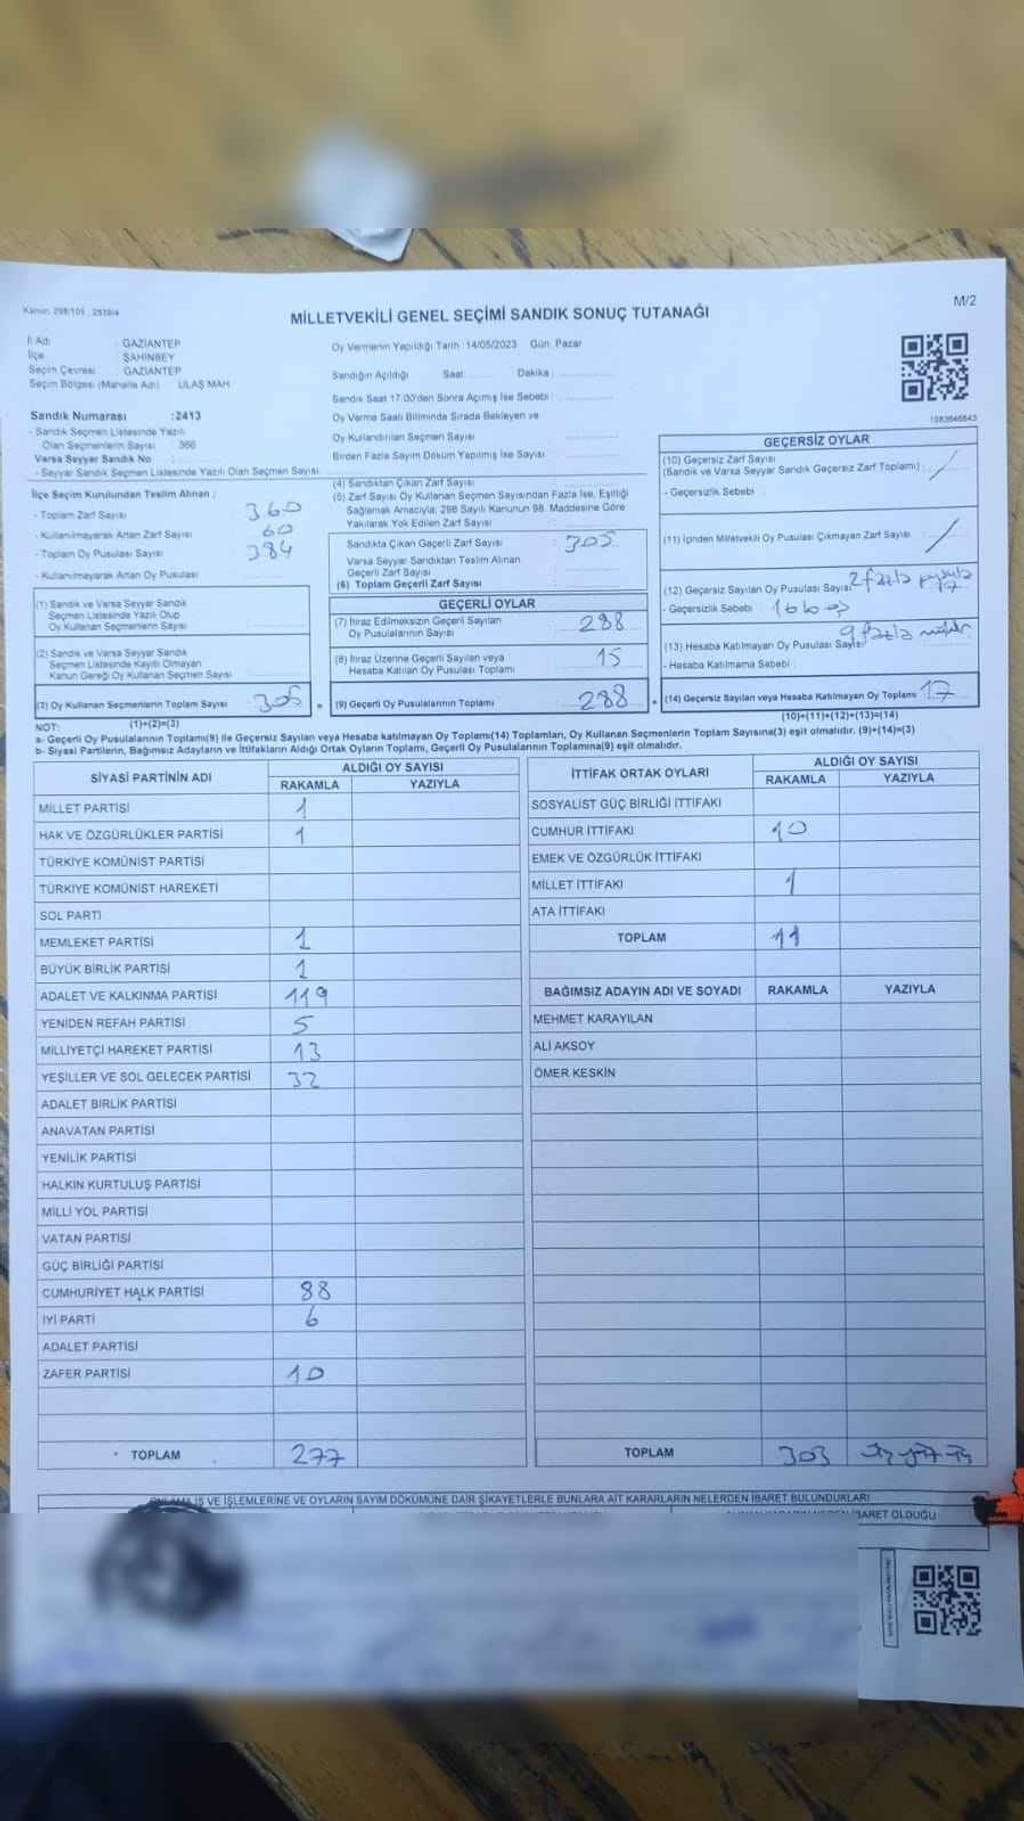 Kanun: 298/105 , 2839/4
M/2
MİLLETVEKİLİ GENEL SEÇİMİ SANDIK SONUÇ TUTANAĞI
İl Adı : GAZİANTEP
İlçe : ŞAHİNBEY
Seçim Çevresi : GAZİANTEP
Seçim Bölgesi (Mahalle Adı) : ULAŞ MAH.
Sandık Numarası :2413
- Sandık Seçmen Listesinde Yazılı
Olan Seçmenlerin Sayısı : 366
Varsa Seyyar Sandık No :
- Seyyar Sandık Seçmen Listesinde Yazılı Olan Seçmen Sayısı :
İlçe Seçim Kurulundan Teslim Alınan ;
- Toplam Zarf Sayısı 360
- Kullanılmayarak Artan Zarf Sayısı 60
- Toplam Oy Pusulası Sayısı 384
- Kullanılmayarak Artan Oy Pusulası
(1) Sandık ve Varsa Seyyar Sandık
Seçmen Listesinde Yazılı Olup
Oy Kullanan Seçmenlerin Sayısı
(2) Sandık ve Varsa Seyyar Sandık
Seçmen Listesinde Kayıtlı Olmayan
Kanun Gereği Oy Kullanan Seçmen Sayısı
(3) Oy Kullanan Seçmenlerin Toplam Sayısı 305
(1)+(2)=(3)
Oy Vermenin Yapıldığı Tarih : 14/05/2023 Gün: Pazar
Sandığın Açıldığı Saat: Dakika :
Sandık Saat 17:00'den Sonra Açımış İse Sebebi :
Oy Verme Saati Bitiminde Sırada Bekleyen ve
Oy Kullandırılan Seçmen Sayısı
Birden Fazla Sayım Döküm Yapılmış İse Sayısı
(4) Sandıktan Çıkan Zarf Sayısı
(5) Zarf Sayısı Oy Kullanan Seçmen Sayısından Fazla İse, Eşitliği
Sağlamak Amacıyla; 298 Sayılı Kanunun 98. Maddesine Göre
Yakılarak Yok Edilen Zarf Sayısı
Sandıkta Çıkan Geçerli Zarf Sayısı : 305
Varsa Seyyar Sandıktan Teslim Alınan
Geçerli Zarf Sayısı
(6) Toplam Geçerli Zarf Sayısı
GEÇERLİ OYLAR
(7) İtiraz Edilmeksizin Geçerli Sayılan
Oy Pusulalarının Sayısı 288
(8) İtiraz Üzerine Geçerli Sayılan veya
Hesaba Katılan Oy Pusulası Toplamı 15
(9) Geçerli Oy Pusulalarının Toplamı 288
1083646643
GEÇERSİZ OYLAR
(10) Geçersiz Zarf Sayısı
(Sandık ve Varsa Seyyar Sandık Geçersiz Zarf Toplamı) : /
- Geçersizlik Sebebi :
(11) İçinden Milletvekili Oy Pusulası Çıkmayan Zarf Sayısı : /
(12) Geçersiz Sayılan Oy Pusulası Sayısı 2 fazla pusula
- Geçersizlik Sebebi
(13) Hesaba Katılmayan Oy Pusulası Sayısı 9 fazla mühür
- Hesaba Katılmama Sebebi :
(14) Geçersiz Sayılan veya Hesaba Katılmayan Oy Toplamı 17
(10)+(11)+(12)+(13)=(14)
NOT:
a- Geçerli Oy Pusulalarının Toplamı(9) ile Geçersiz Sayılan veya Hesaba katılmayan Oy Toplamı(14) Toplamları, Oy Kullanan Seçmenlerin Toplam Sayısına(3) eşit olmalıdır. (9)+(14)=(3)
b- Siyasi Partilerin, Bağımsız Adayların ve İttifakların Aldığı Ortak Oyların Toplamı, Geçerli Oy Pusulalarının Toplamına(9) eşit olmalıdır.
SİYASİ PARTİNİN ADI ALDIĞI OY SAYISI
RAKAMLA YAZIYLA
MİLLET PARTİSİ 1
HAK VE ÖZGÜRLÜKLER PARTİSİ 1
TÜRKİYE KOMÜNİST PARTİSİ
TÜRKİYE KOMÜNİST HAREKETİ
SOL PARTİ
MEMLEKET PARTİSİ 1
BÜYÜK BİRLİK PARTİSİ 1
ADALET VE KALKINMA PARTİSİ 119
YENİDEN REFAH PARTİSİ 5
MİLLİYETÇİ HAREKET PARTİSİ 13
YEŞİLLER VE SOL GELECEK PARTİSİ 32
ADALET BİRLİK PARTİSİ
ANAVATAN PARTİSİ
YENİLİK PARTİSİ
HALKIN KURTULUŞ PARTİSİ
MİLLİ YOL PARTİSİ
VATAN PARTİSİ
GÜÇ BİRLİĞİ PARTİSİ
CUMHURİYET HALK PARTİSİ 88
İYİ PARTİ 6
ADALET PARTİSİ
ZAFER PARTİSİ 10
TOPLAM 277
İTTİFAK ORTAK OYLARI ALDIĞI OY SAYISI
RAKAMLA YAZIYLA
SOSYALİST GÜÇ BİRLİĞİ İTTİFAKI
CUMHUR İTTİFAKI 10
EMEK VE ÖZGÜRLÜK İTTİFAKI
MİLLET İTTİFAKI 1
ATA İTTİFAKI
TOPLAM 11
BAĞIMSIZ ADAYIN ADI VE SOYADI RAKAMLA YAZIYLA
MEHMET KARAYILAN
ALİ AKSOY
ÖMER KESKİN
TOPLAM 303 üç yüz üç
İŞ VE İŞLEMLERİNE VE OYLARIN SAYIM DÖKÜMÜNE DAİR ŞİKAYETLERLE BUNLARA AİT KARARLARIN NELERDEN İBARET BULUNDUKLARI
İBARET OLDUĞU